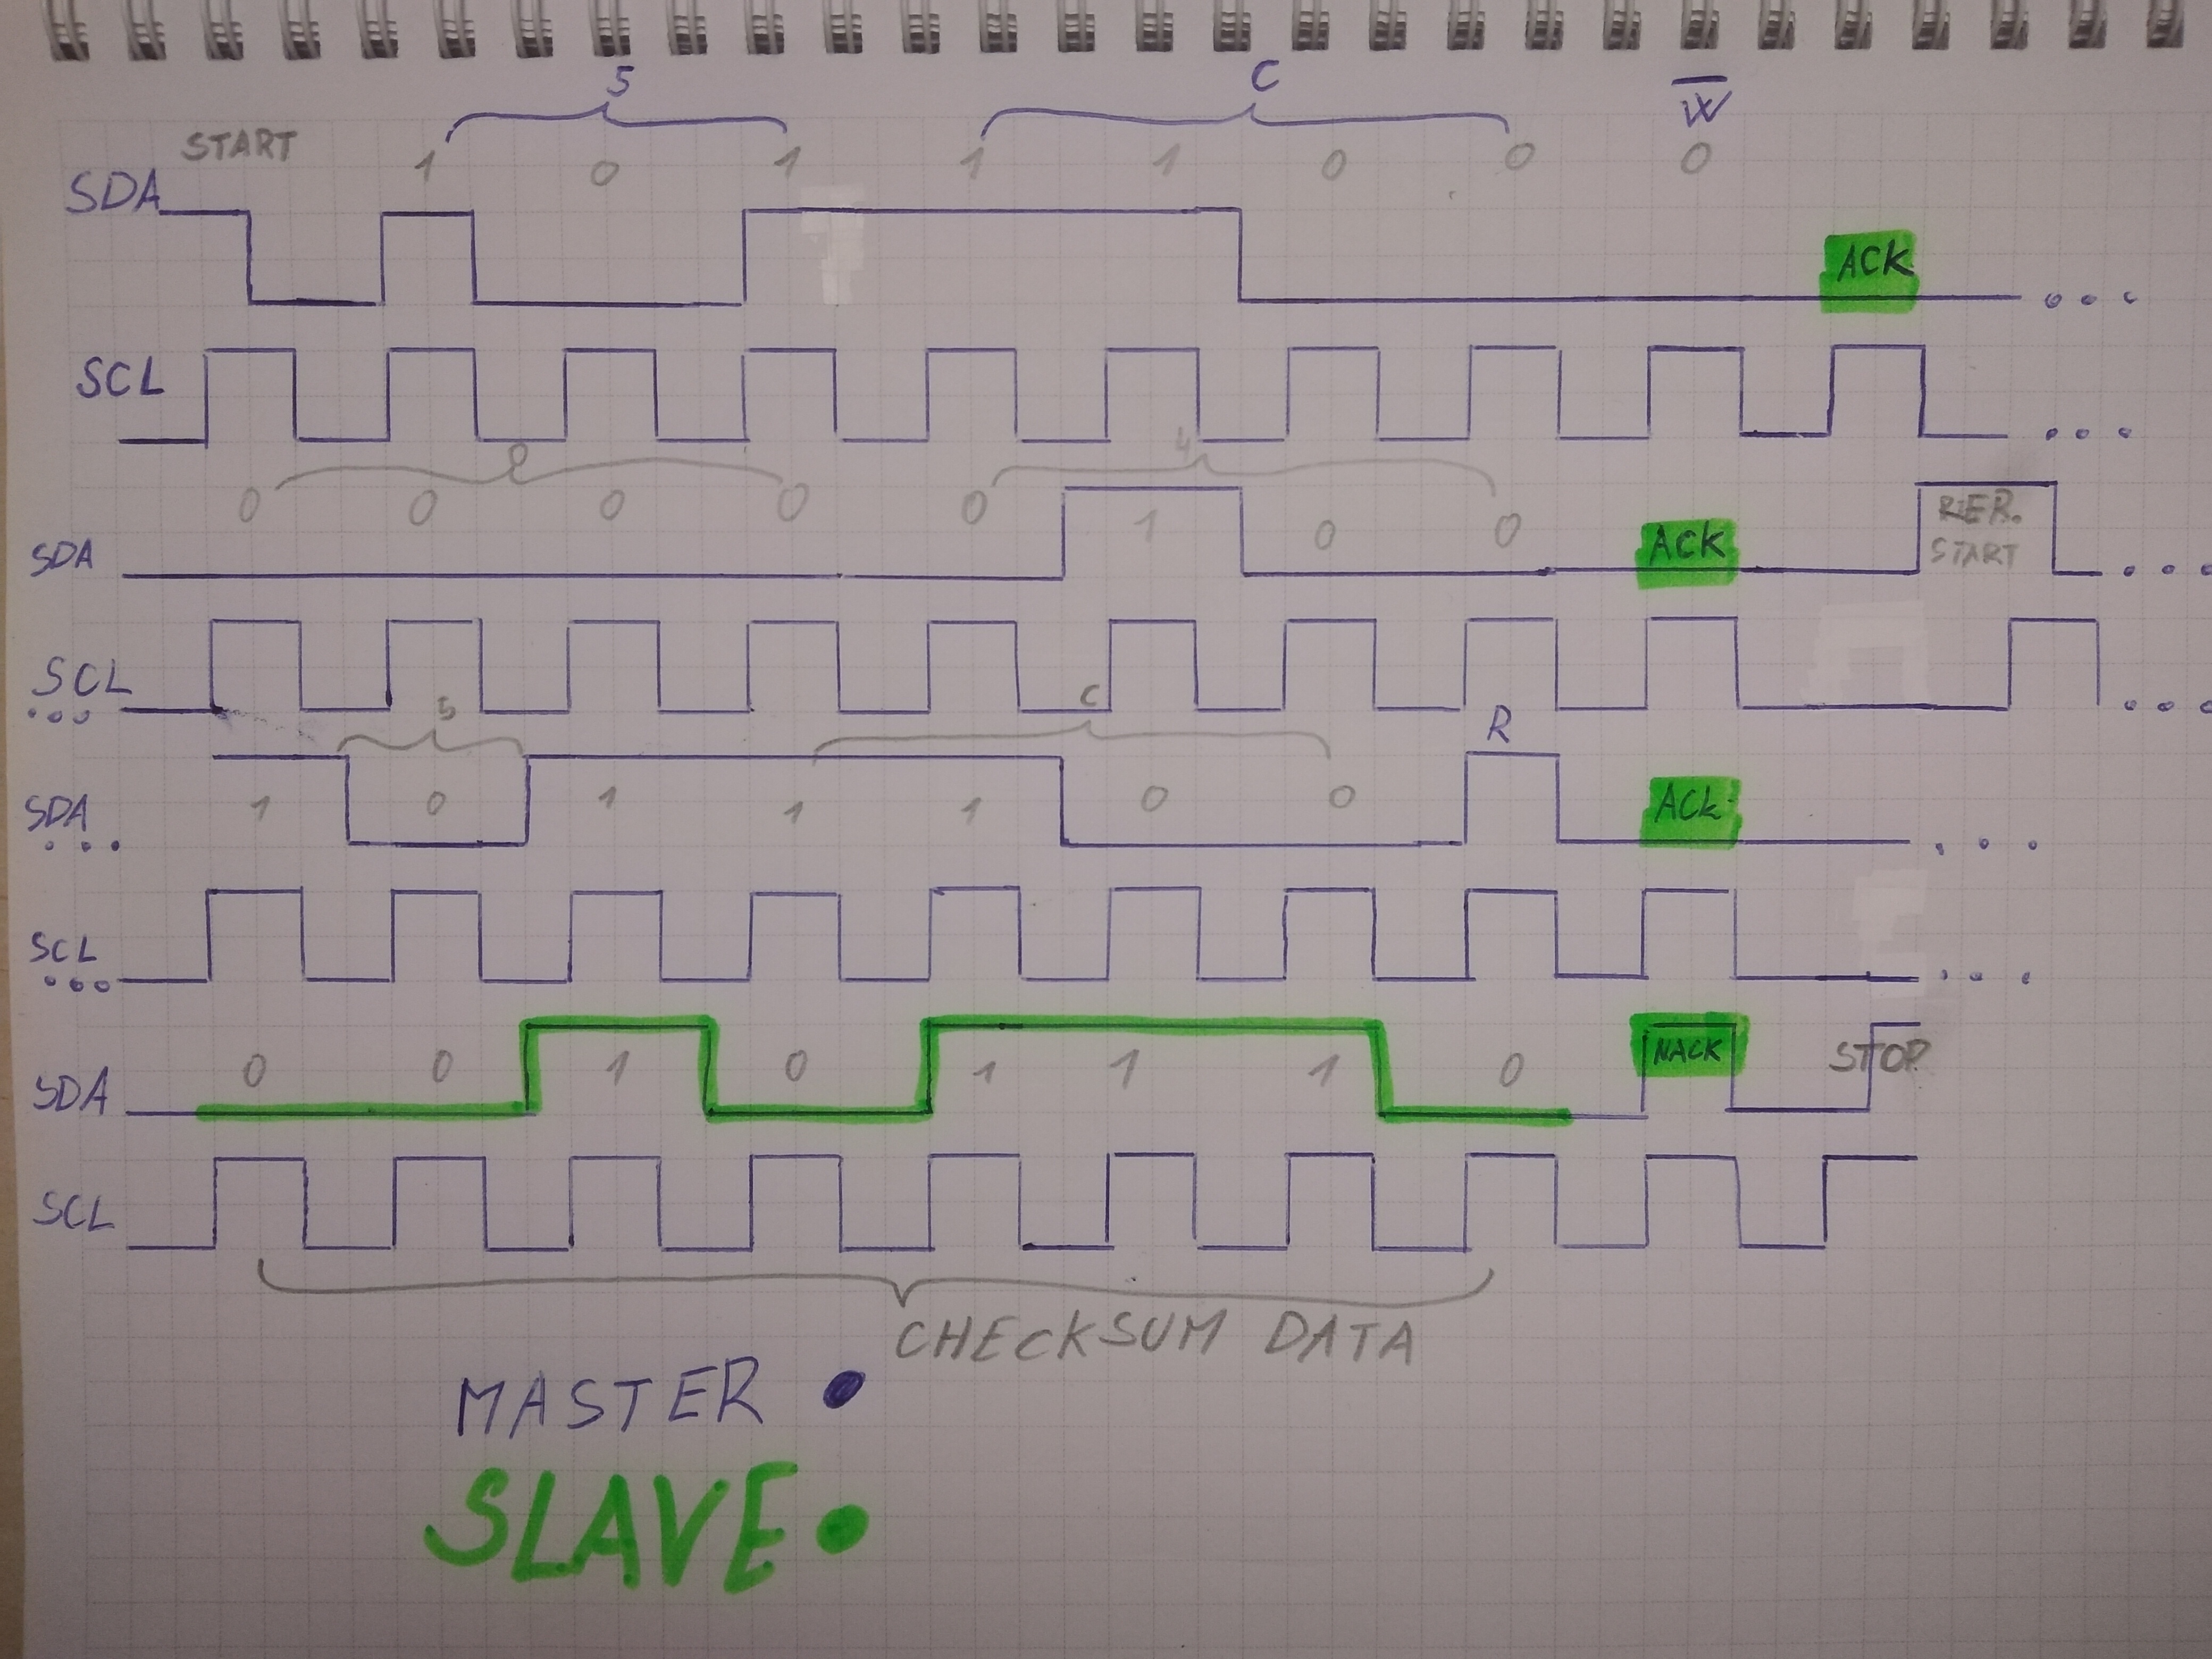 5 C W
START 1 0 1 1 1 0 0 0
SDA
ACK
SCL
0 4
0 0 0 0 0 1 0 0
SDA ACK RER.
START
SCL
5 C R
SDA 1 0 1 1 1 0 0 ACK
SCL
SDA 0 0 1 0 1 1 1 0 NACK STOP
SCL
CHECKSUM DATA
MASTER
SLAVE